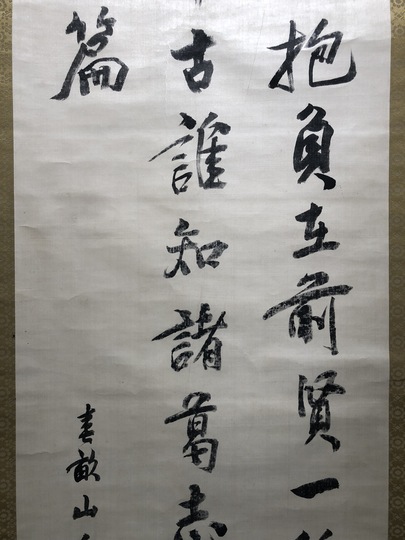 抱負在前賢一
古誰知諸葛志
篇
春畝山